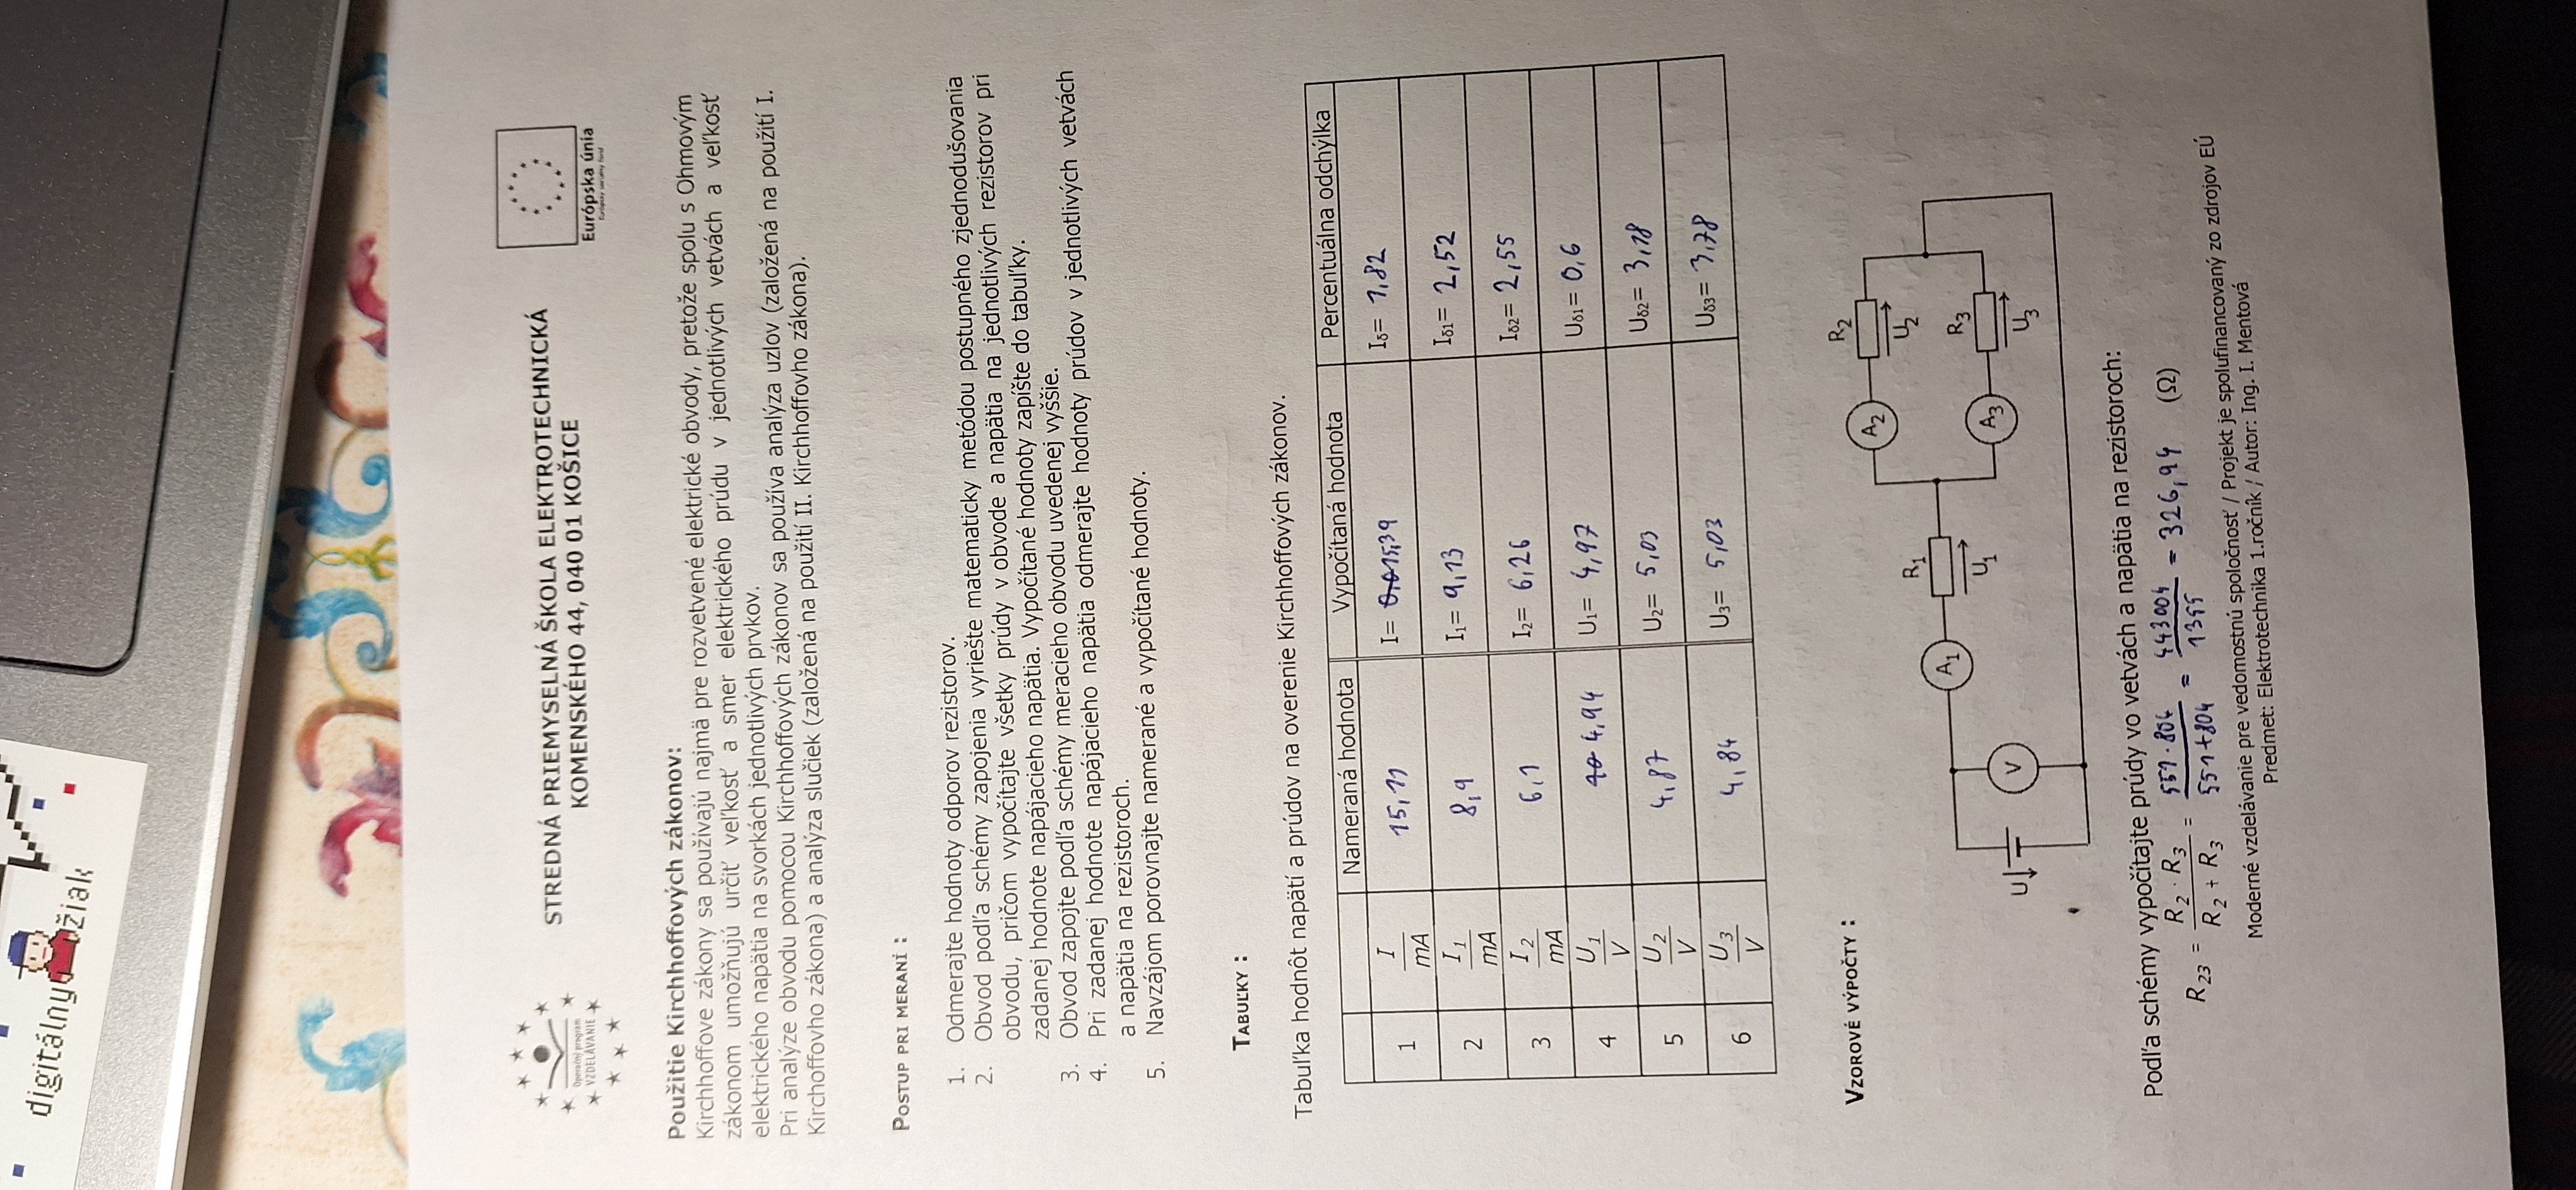 digitálny žiak
Operačný program
VZDELÁVANIE
STREDNÁ PRIEMYSELNÁ ŠKOLA ELEKTROTECHNICKÁ
KOMENSKÉHO 44, 040 01 KOŠICE
Európska únia
Európsky sociálny fond
Použitie Kirchhoffových zákonov:
Kirchhoffove zákony sa používajú najmä pre rozvetvené elektrické obvody, pretože spolu s Ohmovým
zákonom umožňujú určiť veľkosť a smer elektrického prúdu v jednotlivých vetvách a veľkosť
elektrického napätia na svorkách jednotlivých prvkov.
Pri analýze obvodu pomocou Kirchhoffových zákonov sa používa analýza uzlov (založená na použití I.
Kirchoffovho zákona) a analýza slučiek (založená na použití II. Kirchhoffovho zákona).
POSTUP PRI MERANÍ :
1. Odmerajte hodnoty odporov rezistorov.
2. Obvod podľa schémy zapojenia vyriešte matematicky metódou postupného zjednodušovania
obvodu, pričom vypočítajte všetky prúdy v obvode a napätia na jednotlivých rezistorov pri
zadanej hodnote napájacieho napätia. Vypočítané hodnoty zapíšte do tabuľky.
3. Obvod zapojte podľa schémy meracieho obvodu uvedenej vyššie.
4. Pri zadanej hodnote napájacieho napätia odmerajte hodnoty prúdov v jednotlivých vetvách
a napätia na rezistoroch.
5. Navzájom porovnajte namerané a vypočítané hodnoty.
TABUĽKY :
Tabuľka hodnôt napätí a prúdov na overenie Kirchhoffových zákonov.
Nameraná hodnota Vypočítaná hodnota Percentuálna odchýlka
1 I/mA 15,11 I= 15,39 Iδ= 1,82
2 I1/mA 8,9 I1= 9,13 Iδ1= 2,52
3 I2/mA 6,1 I2= 6,26 Iδ2= 2,55
4 U1/V 4,94 U1= 4,97 Uδ1= 0,6
5 U2/V 4,87 U2= 5,03 Uδ2= 3,18
6 U3/V 4,84 U3= 5,03 Uδ3= 3,78
VZOROVÉ VÝPOČTY :
A2 R2 U2
A1 R1 U1
A3 R3 U3
U V
Podľa schémy vypočítajte prúdy vo vetvách a napätia na rezistoroch:
R23 = R2 · R3 / R2 + R3 = 551·804 / 551+804 = 443004 / 1355 = 326,94 (Ω)
Moderné vzdelávanie pre vedomostnú spoločnosť / Projekt je spolufinancovaný zo zdrojov EÚ
Predmet: Elektrotechnika 1.ročník / Autor: Ing. I. Mentová